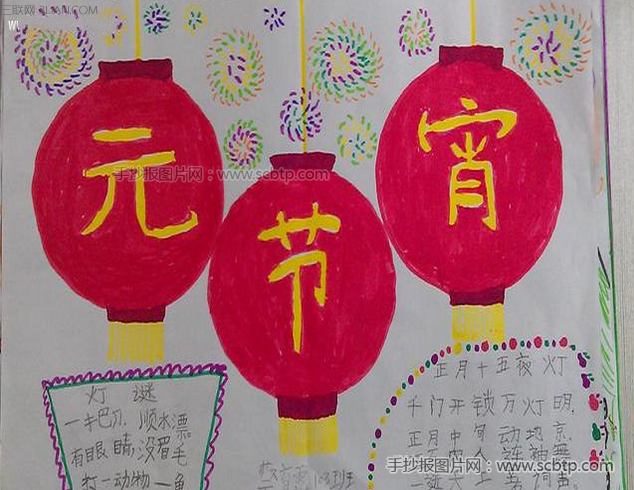 三联网 3LIAN.COM
元
宵
节
手抄报图片网：www.scbtp.com
灯谜
一把刀，顺水漂。
有眼睛，没眉毛
打一动物—鱼
正月十五夜灯
千门开锁万灯明，
正月中旬动地京。
手抄报图片网：www.scbtp.com